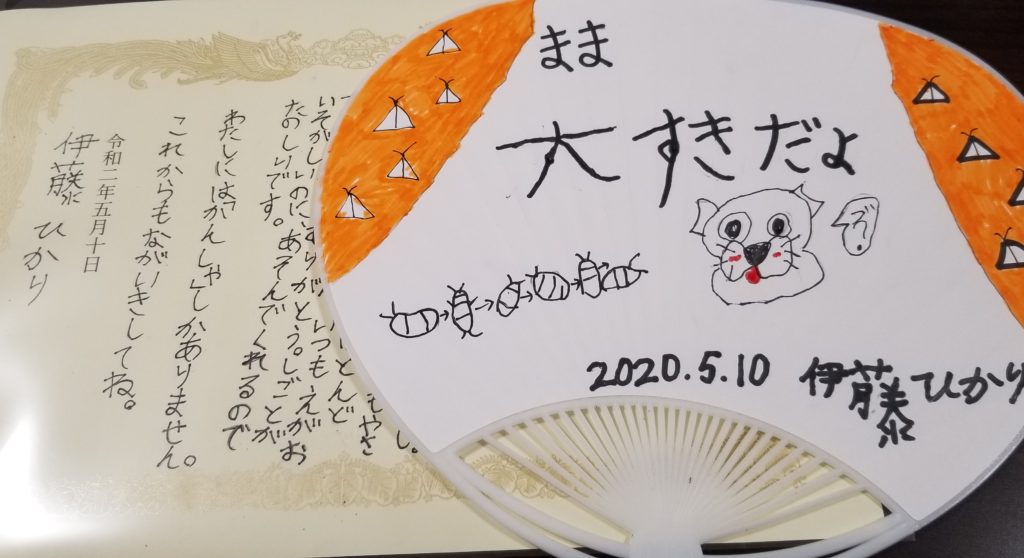 まま
大すきだよ
2020.5.10 伊藤ひかり
いつもえがお
りがとう。しごとが
いそがしいのにあそんでくれるので
たのしいです。
わたしには「がんしゃ」しかありません。
これからもながいきしてね。
令和二年五月十日
伊藤 ひかり